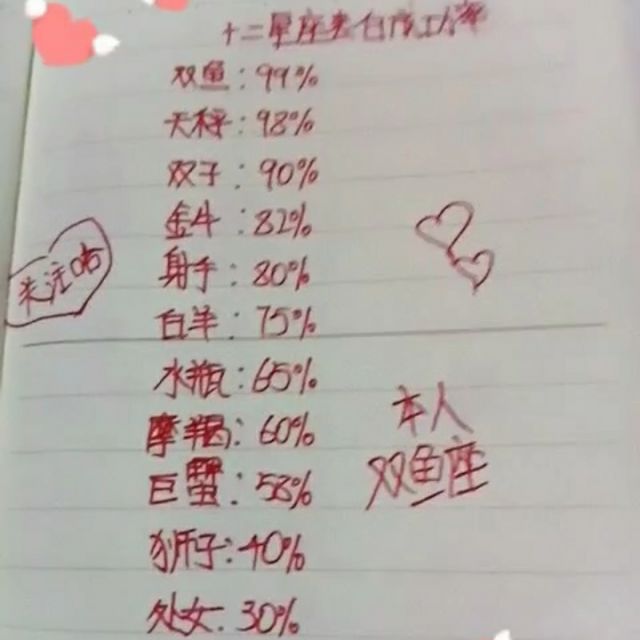 十二星座表白成功率
双鱼：99%
天秤：98%
双子：90%
金牛：82%
身手：80%
关注哈
白羊：75%
水瓶：65%
摩羯：60%
本人
双鱼座
巨蟹：58%
狮子：40%
处女：30%